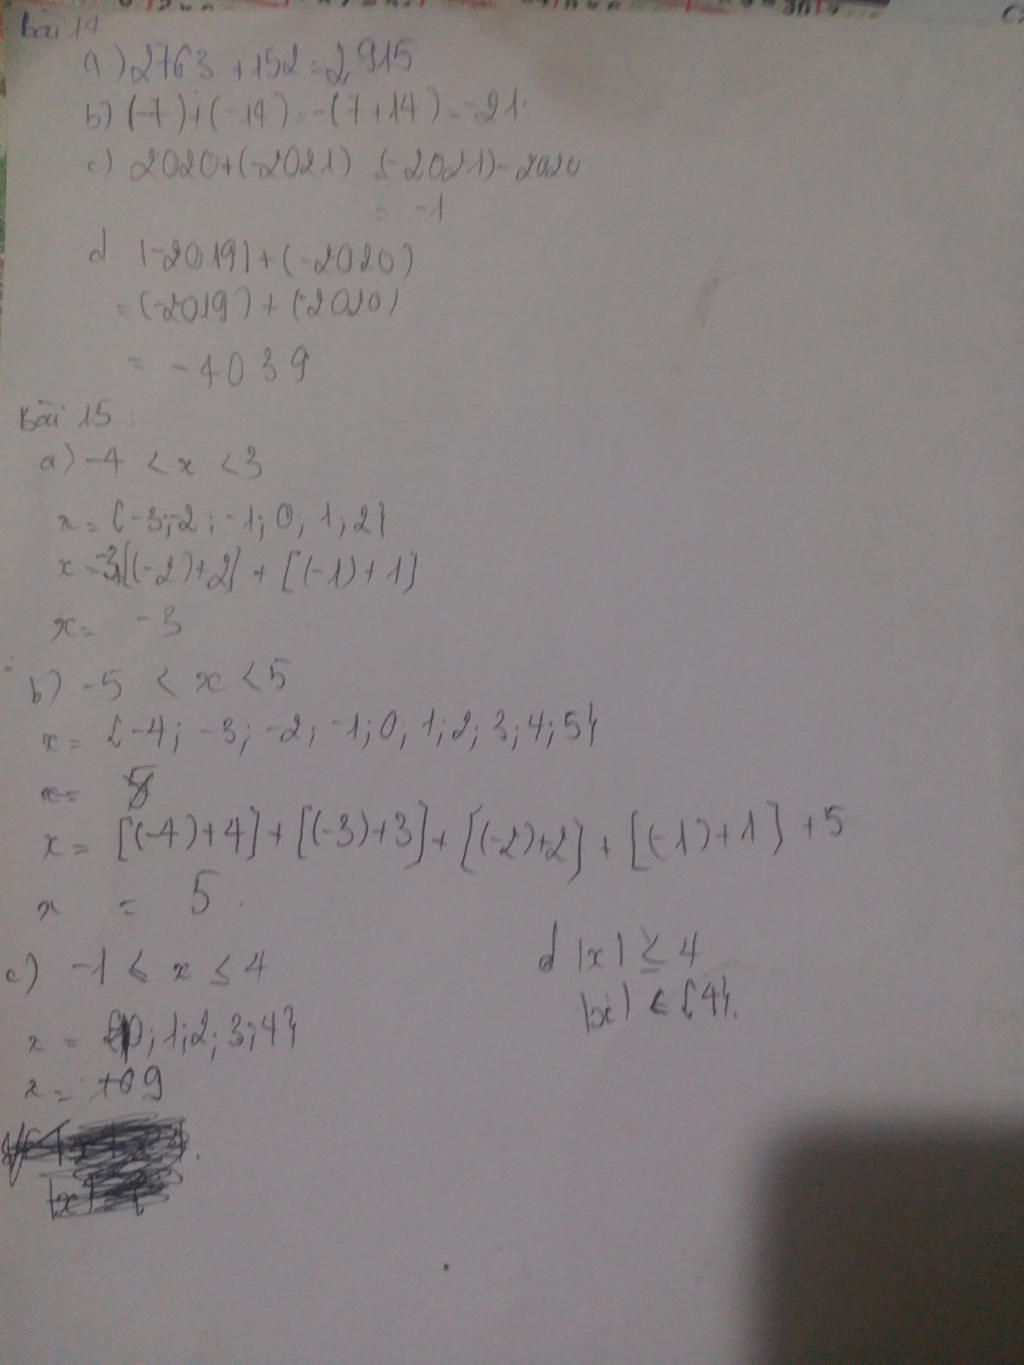 Bài 14
a) 2763 + 152 = 2,915
b) (-7)+(-14) = -(7+14) = -21
c) 2020+(-2021) (-2021)-2020
= -1
d (-2019)+(-2020)
= (-2019) + (-2020)
= -4039
Bài 15 :
a) -4 < x < 3
x = {-3;-2; -1; 0; 1; 2}
x = -3[(-2)+2] + [(-1)+1]
x = -3
b) -5 < x < 5
x = {-4; -3; -2; -1; 0; 1; 2; 3; 4; 5}
x =
x = [(-4)+4]+[(-3)+3]+[(-2)+2]+[(-1)+1] +5
x = 5
c) -1 ≤ x ≤ 4
x = 0; 1; 2; 3; 4}
x = 9
|x|
d |x| ≥ 4
|x| ≤ {4}.